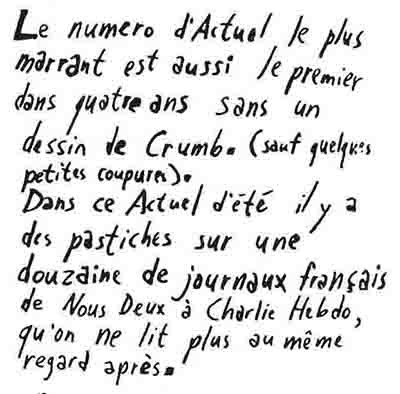 Le numero d'Actuel le plus
marrant est aussi le premier
dans quatre ans sans un
dessin de Crumb. (sauf quelques
petites coupures).
Dans ce Actuel d'été il y a
des pastiches sur une
douzaine de journaux français
de Nous Deux à Charlie Hebdo,
qu'on ne lit plus au même
regard après.